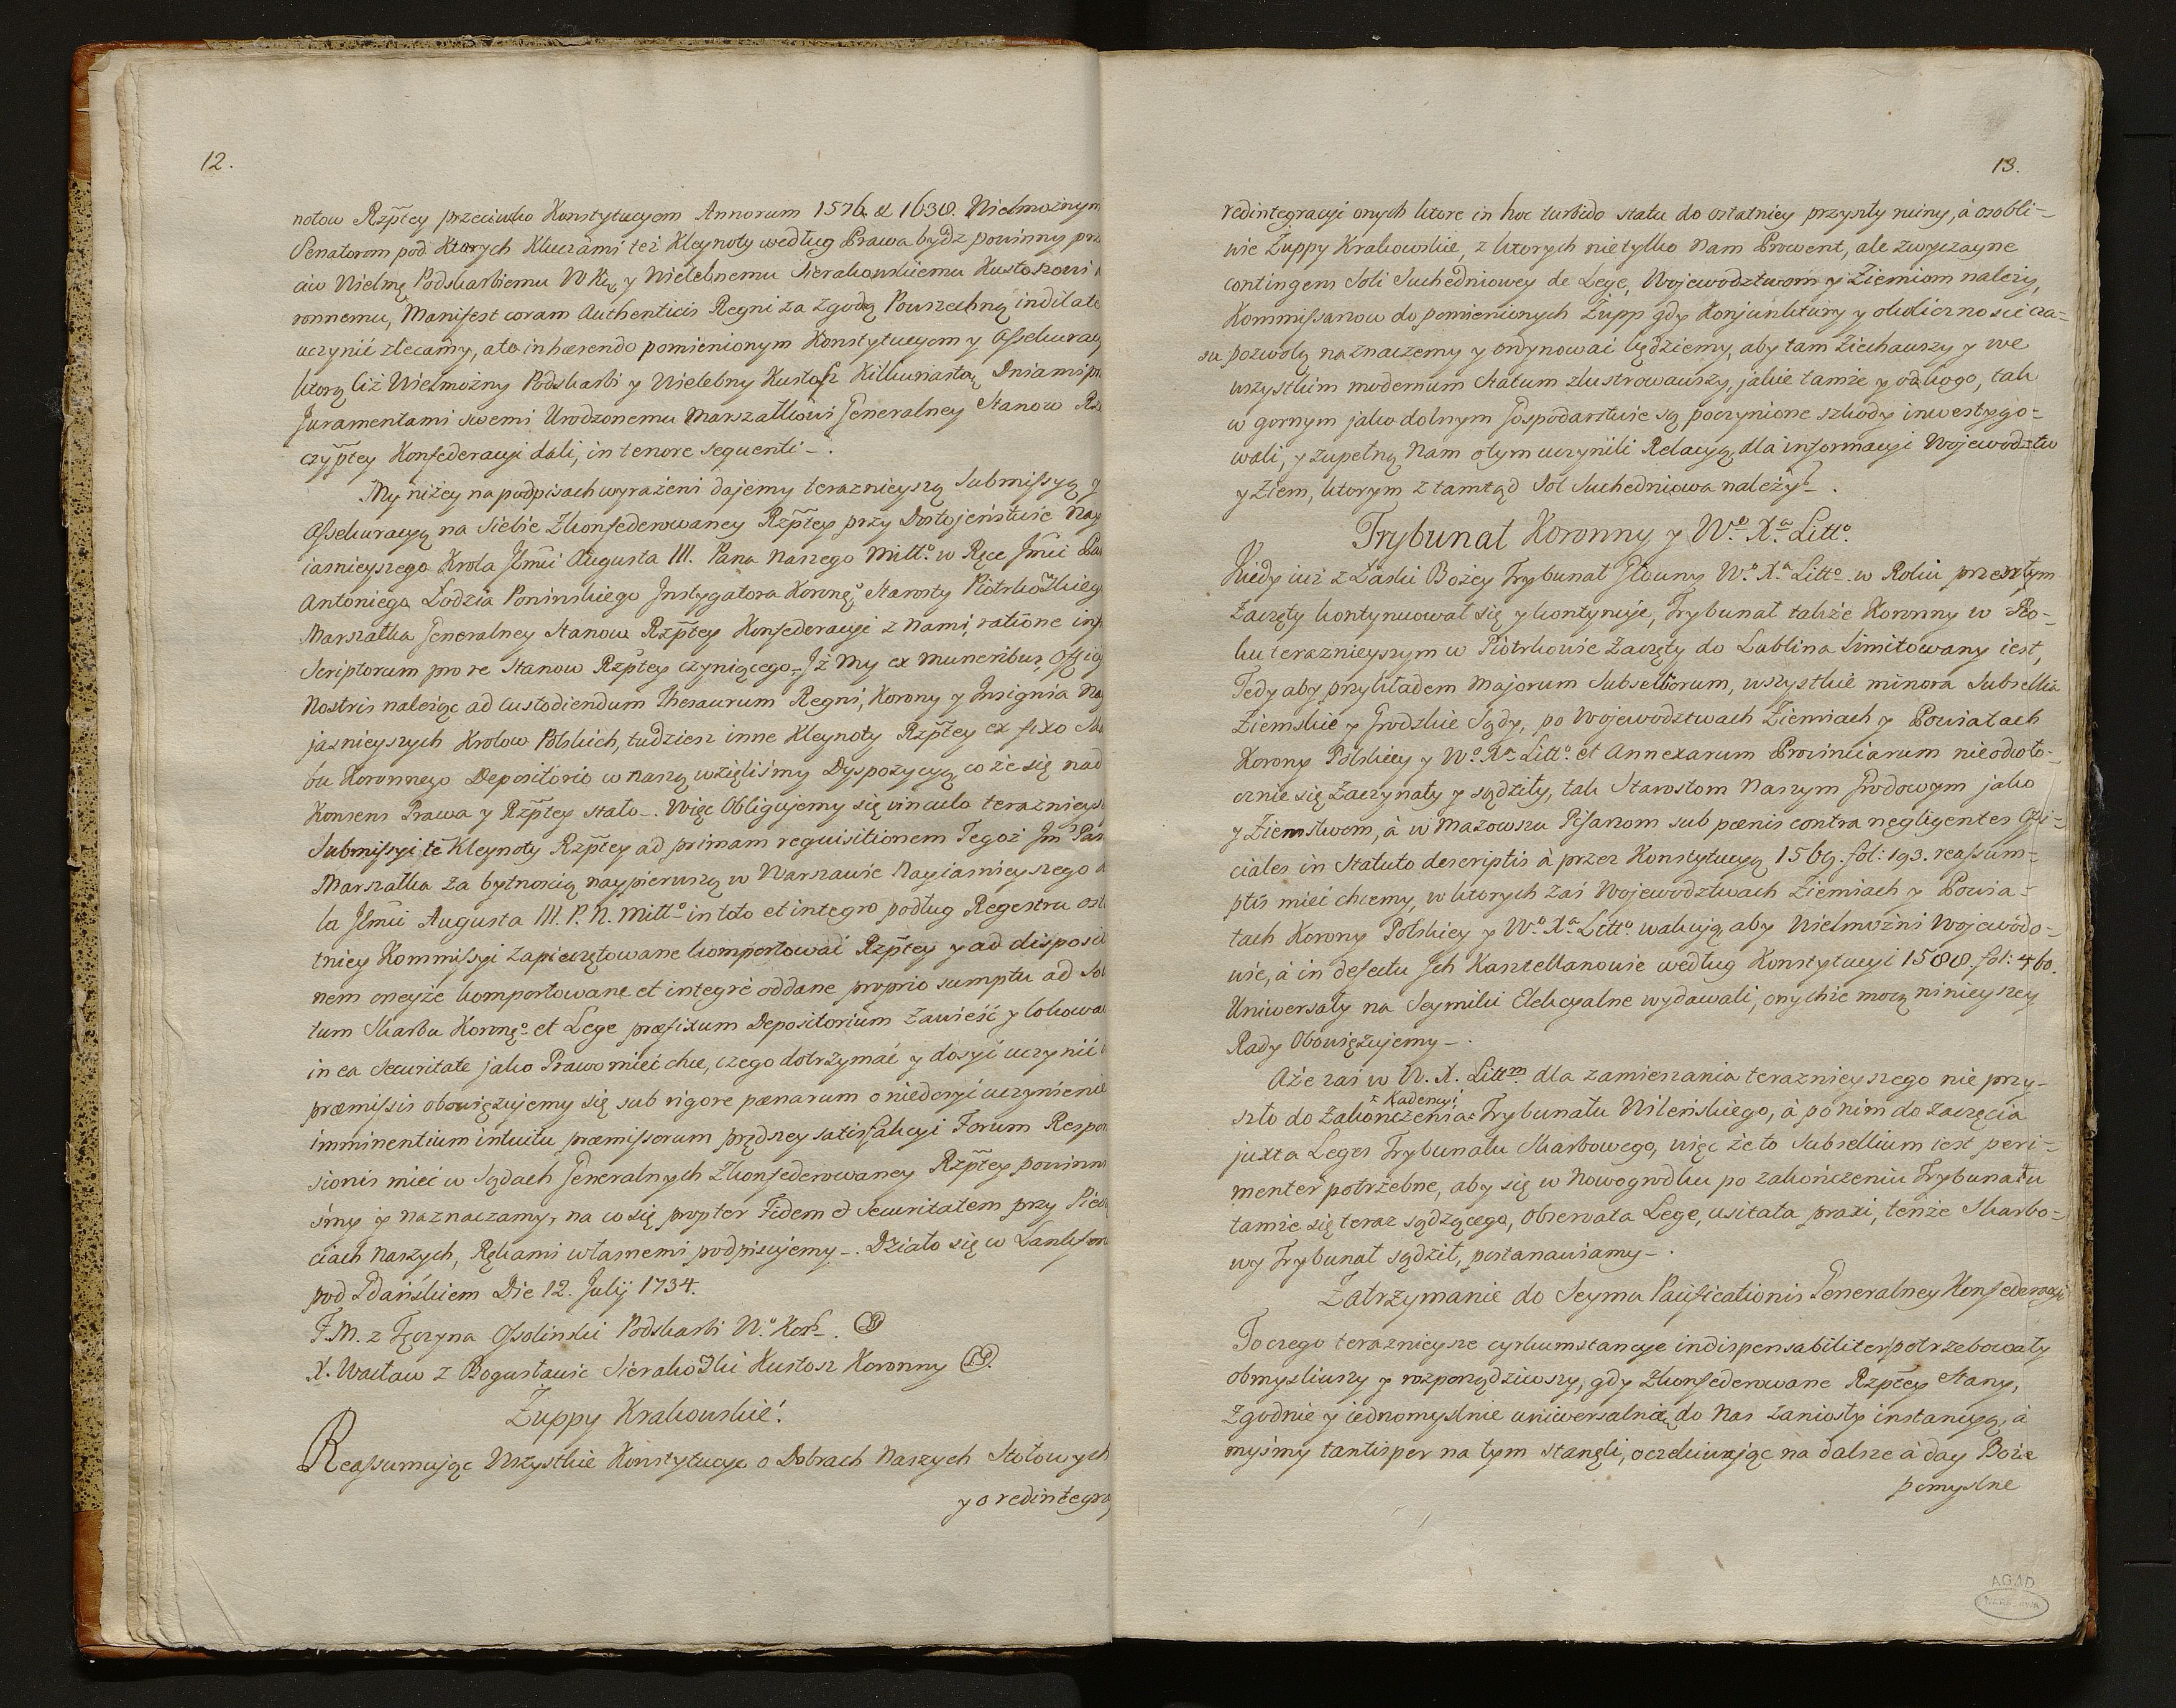 12.
notow Rzptey przeciwko Konstytucyom Annorum 1576. et 1638. Wielmożnym
Senatorom pod Ktorych Kluczami też Kleynoty według Prawa bydz powinny prze
ciw Wielmę Podskarbiemu W Kę y Wielebnemu Sierakowskiemu Kustoszowi
ronnemu, Manifest coram Authenticis Regni za zgodą Powszechną indilate
uczynić zlecamy, a to inhærendo pomienionym Konstytucyom y Assekuracy
ktorą Ciż Wielmożny Podskarbi y Wielebny Kustosz Kilkunastą Dniami
Juramentami swemi Urodzonemu Marszałkowi Generalney Stanow Rze
czyptey Konfederacyi dali, in tenore sequenti –.
My niżey na podpisach wyrażeni dajemy teraznieyszą Submissyą y
Assekuracyą na Siebie Zkonfederowaney Rzptey przy Dostojeństwie Nay
iasnieyszego Krola Jmci Augusta III. Pana Naszego Miłło. w Ręce Jmci Pa
Antoniego Łodzia Poninskiego Instygatora Koronęo, Starosty Piotrkowskieg
Marszałka Generalney Stanow Rzptey Konfederacyi z nami, ratione inf
Scriptorum pro re Stanow Rzptey czyniącego, Iż My ex muneribus, Offic
Nostris należąc ad custodiendum Thesaurum Regni, Korony y Insignia Nay
jasnieyszych Krolow Polskich, tudziesz inne Kleynoty Rzptey ex fixo Ska
bu Koronnego Depositorio w naszą wzięliśmy Dyspozycyą, co że się nad
Konsens Prawa y Rzptey stało –. Więc Obligujemy się vinculo terazniey
Submissyi te Kleynoty Rzptey ad primam requisitionem Tegoż Jm Pa
Marszałka za bytnoscią naypierwszą w Warszawie Nayiasnieyszego
la Jmci Augusta III. P. N. Miłło in toto et integro podług Regestru ost
tniey Kommissyi zapieczętowane komportować Rzptey y ad disposit
nem oneyże komportowane et integrè oddane proprio sumptu ad so
tum Skarbu Koronęo et Lege præfixum Depositorium zawieść y lokowa
in ea Securitate jako Prawo mieć chce, czego dotrzymać y dosyć uczynić
præmissis obowięzujemy się sub rigore pænarum o niedosyć uczynienie
imminentium intuitu præmissorum prędszey satisfakcyi Forum Respon
sionis mieć w Sądach Generalnych Zkonfederowaney Rzptey powinni
śmy y naznaczamy, na co się propter Fidem et Securitatem przy Piecz
ciach Naszych, Rękami własnemi podpisujemy –. Działo się w Lankfor
pod Gdańskiem Die 12. Julij 1734.
F. M. z Tęczyna Ossolinski Podskarbi W.o Kor –.
X. Wacław z Bogusławic Sierakowski Kustosz Koronny LS.
Żuppy Krakowskie.
Reassumując Wszystkie Konstytucye o Dobrach Naszych Stołowych
y o redintegra
13.
redintegracyi onych ktore in hoc turbido statu do ostatniey przyszły ruiny, à osobli=
wie Żuppy Krakowskie, z ktorych nie tylko Nam Prowent, ale zwyczayne
contingens Soli Suchedniowey de Lege, Wojewodztwom y Ziemiom należy,
Kommissarzow do pomienionych Żupp gdy Konjunktury y okoliczności cza=
su pozwolą naznaczemy y ordynować będziemy, aby tam ziechawszy y we
wszystkim modernum Statum zlustrowawszy, jakie tamże y od kogo, tak
w gornym jako dolnym Gospodarstwie są poczynione szkody inwestygo=
wali, y zupełną Nam o tym uczynili Relacyą, dla informacyi Wojewodztw
y Ziem, ktorym z tamtąd Sol Suchedniowa należy –.
Trybunał Koronny y W.o X.a Litto.
Kiedy iuż z Łaski Bożey Trybunał Głowny W.o X.a Litto. w Roku przeszłym
zaczęty kontynuował się y kontynuje, Trybunał także Koronny w Ro=
ku teraznieyszym w Piotrkowie zaczęty do Lublina limitowany iest,
Tedy aby przykładem Majorum Subselliorum, wszystkie minora Subsellia
Ziemskie y Grodzkie Sądy, po Wojewodztwach Ziemiach y Powiatach
Korony Polskiey y W.o X.a Litto. et Annexarum Provinciarum nieodwło=
cznie się zaczynały y sądziły, tak Starostom Naszym Grodowym jako
y Ziemstwom, à w Mazowszu Pisarzom sub pænis contra negligentes Offi=
ciales in Statuto descriptis à przez Konstytucyą 1569. fol: 193. reassum=
ptis mieć chcemy, w ktorych zaś Wojewodztwach Ziemiach y Powia=
tach Korony Polskiey y W.o X.a Litto. wakują, aby Wielmożni Wojewodo=
wie, à in defectu Ich Kasztellanowie według Konstytucyi 1588. fol: 460.
Uniwersały na Seymiki Elekcyalne wydawali, onychże mocą ninieyszey
Rady Obowięzujemy –.
A że zaś w W. X. Littm. dla zamieszania teraznieyszego nie przy=
szło do zakończenia Kadencyi Trybunału Wileńskiego, à po nim do zaczęcia
juxta Leges Trybunału Skarbowego, więc że to Subsellium iest peri=
menter potrzebne, aby się w Nowogrodku po zakończeniu Trybunału
tamże się teraz sądzącego, Observata Lege, usitata praxi, tenże Skarbo=
wy Trybunał sądził, postanawiamy –.
Zatrzymanie do Seymu Pacificationis Generalney Konfederacyi
To czego teraznieysze cyrkumstancye indispensabiliter potrzebowały
obmysliwszy y rozporządziwszy, gdy Zkonfederowane Rzptey Stany,
Zgodnie y iednomyslnie uniwersalnie do Nas zaniosły instancyą, à
myśmy tantisper na tym stanęli, oczekiwając na dalsze à day Boże
pomyslne
AGAD
WARSZAWA